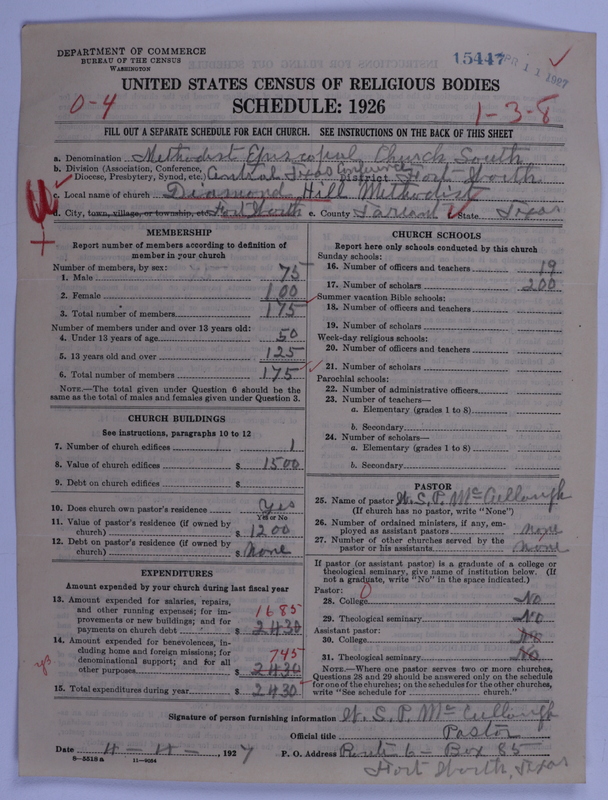 DEPARTMENT OF COMMERCE
BUREAU OF THE CENSUS
WASHINGTON
15447 APR 11 1927
UNITED STATES CENSUS OF RELIGIOUS BODIES
SCHEDULE: 1926
0-4
1-3-8
FILL OUT A SEPARATE SCHEDULE FOR EACH CHURCH. SEE INSTRUCTIONS ON THE BACK OF THIS SHEET
a. Denomination Methodist Episcopal Church South
b. Division (Association, Conference, Diocese, Presbytery, Synod, etc.) Central Texas Conference District Fort Worth
c. Local name of church Diamond Hill Methodist
d. City, town, village, or township, etc. Fort Worth e. County Tarrant State Texas
MEMBERSHIP
Report number of members according to definition of
member in your church
Number of members, by sex:
1. Male 75
2. Female 100
3. Total number of members 175
Number of members under and over 13 years old:
4. Under 13 years of age 50
5. 13 years old and over 125
6. Total number of members 175
NOTE.—The total given under Question 6 should be the
same as the total of males and females given under Question 3.
CHURCH BUILDINGS
See instructions, paragraphs 10 to 12
7. Number of church edifices 1
8. Value of church edifices $ 1500
9. Debt on church edifices $
10. Does church own pastor's residence Yes
Yes or No
11. Value of pastor's residence (if owned by
church) $ 1200
12. Debt on pastor's residence (if owned by
church) $ None
EXPENDITURES
Amount expended by your church during last fiscal year
13. Amount expended for salaries, repairs,
and other running expenses; for im-
provements or new buildings; and for
payments on church debt $ 1685 2430
14. Amount expended for benevolences, in-
cluding home and foreign missions; for
denominational support; and for all
other purposes $ 745 2430
15. Total expenditures during year $ 2430
CHURCH SCHOOLS
Report here only schools conducted by this church
Sunday schools:
16. Number of officers and teachers 19
17. Number of scholars 200
Summer vacation Bible schools:
18. Number of officers and teachers
19. Number of scholars
Week-day religious schools:
20. Number of officers and teachers
21. Number of scholars
Parochial schools:
22. Number of administrative officers
23. Number of teachers—
a. Elementary (grades 1 to 8)
b. Secondary
24. Number of scholars—
a. Elementary (grades 1 to 8)
b. Secondary
PASTOR
25. Name of pastor W. S. P. McCullough
(If church has no pastor, write "None")
26. Number of ordained ministers, if any, em-
ployed as assistant pastors none
27. Number of other churches served by the
pastor or his assistants none
If pastor (or assistant pastor) is a graduate of a college or
theological seminary, give name of institution below. (If
not a graduate, write "No" in the space indicated.)
Pastor: 0
28. College No
29. Theological seminary No
Assistant pastor:
30. College No
31. Theological seminary No
NOTE.—Where one pastor serves two or more churches,
Questions 28 and 29 should be answered only on the schedule
for one of the churches; on the schedules for the other churches,
write "See schedule for church."
Signature of person furnishing information W. S. P. McCullough
Official title Pastor
Date 4-4-, 1927 P. O. Address Route 6 - Box 85
8—5518a 11—9084
Fort Worth, Texas